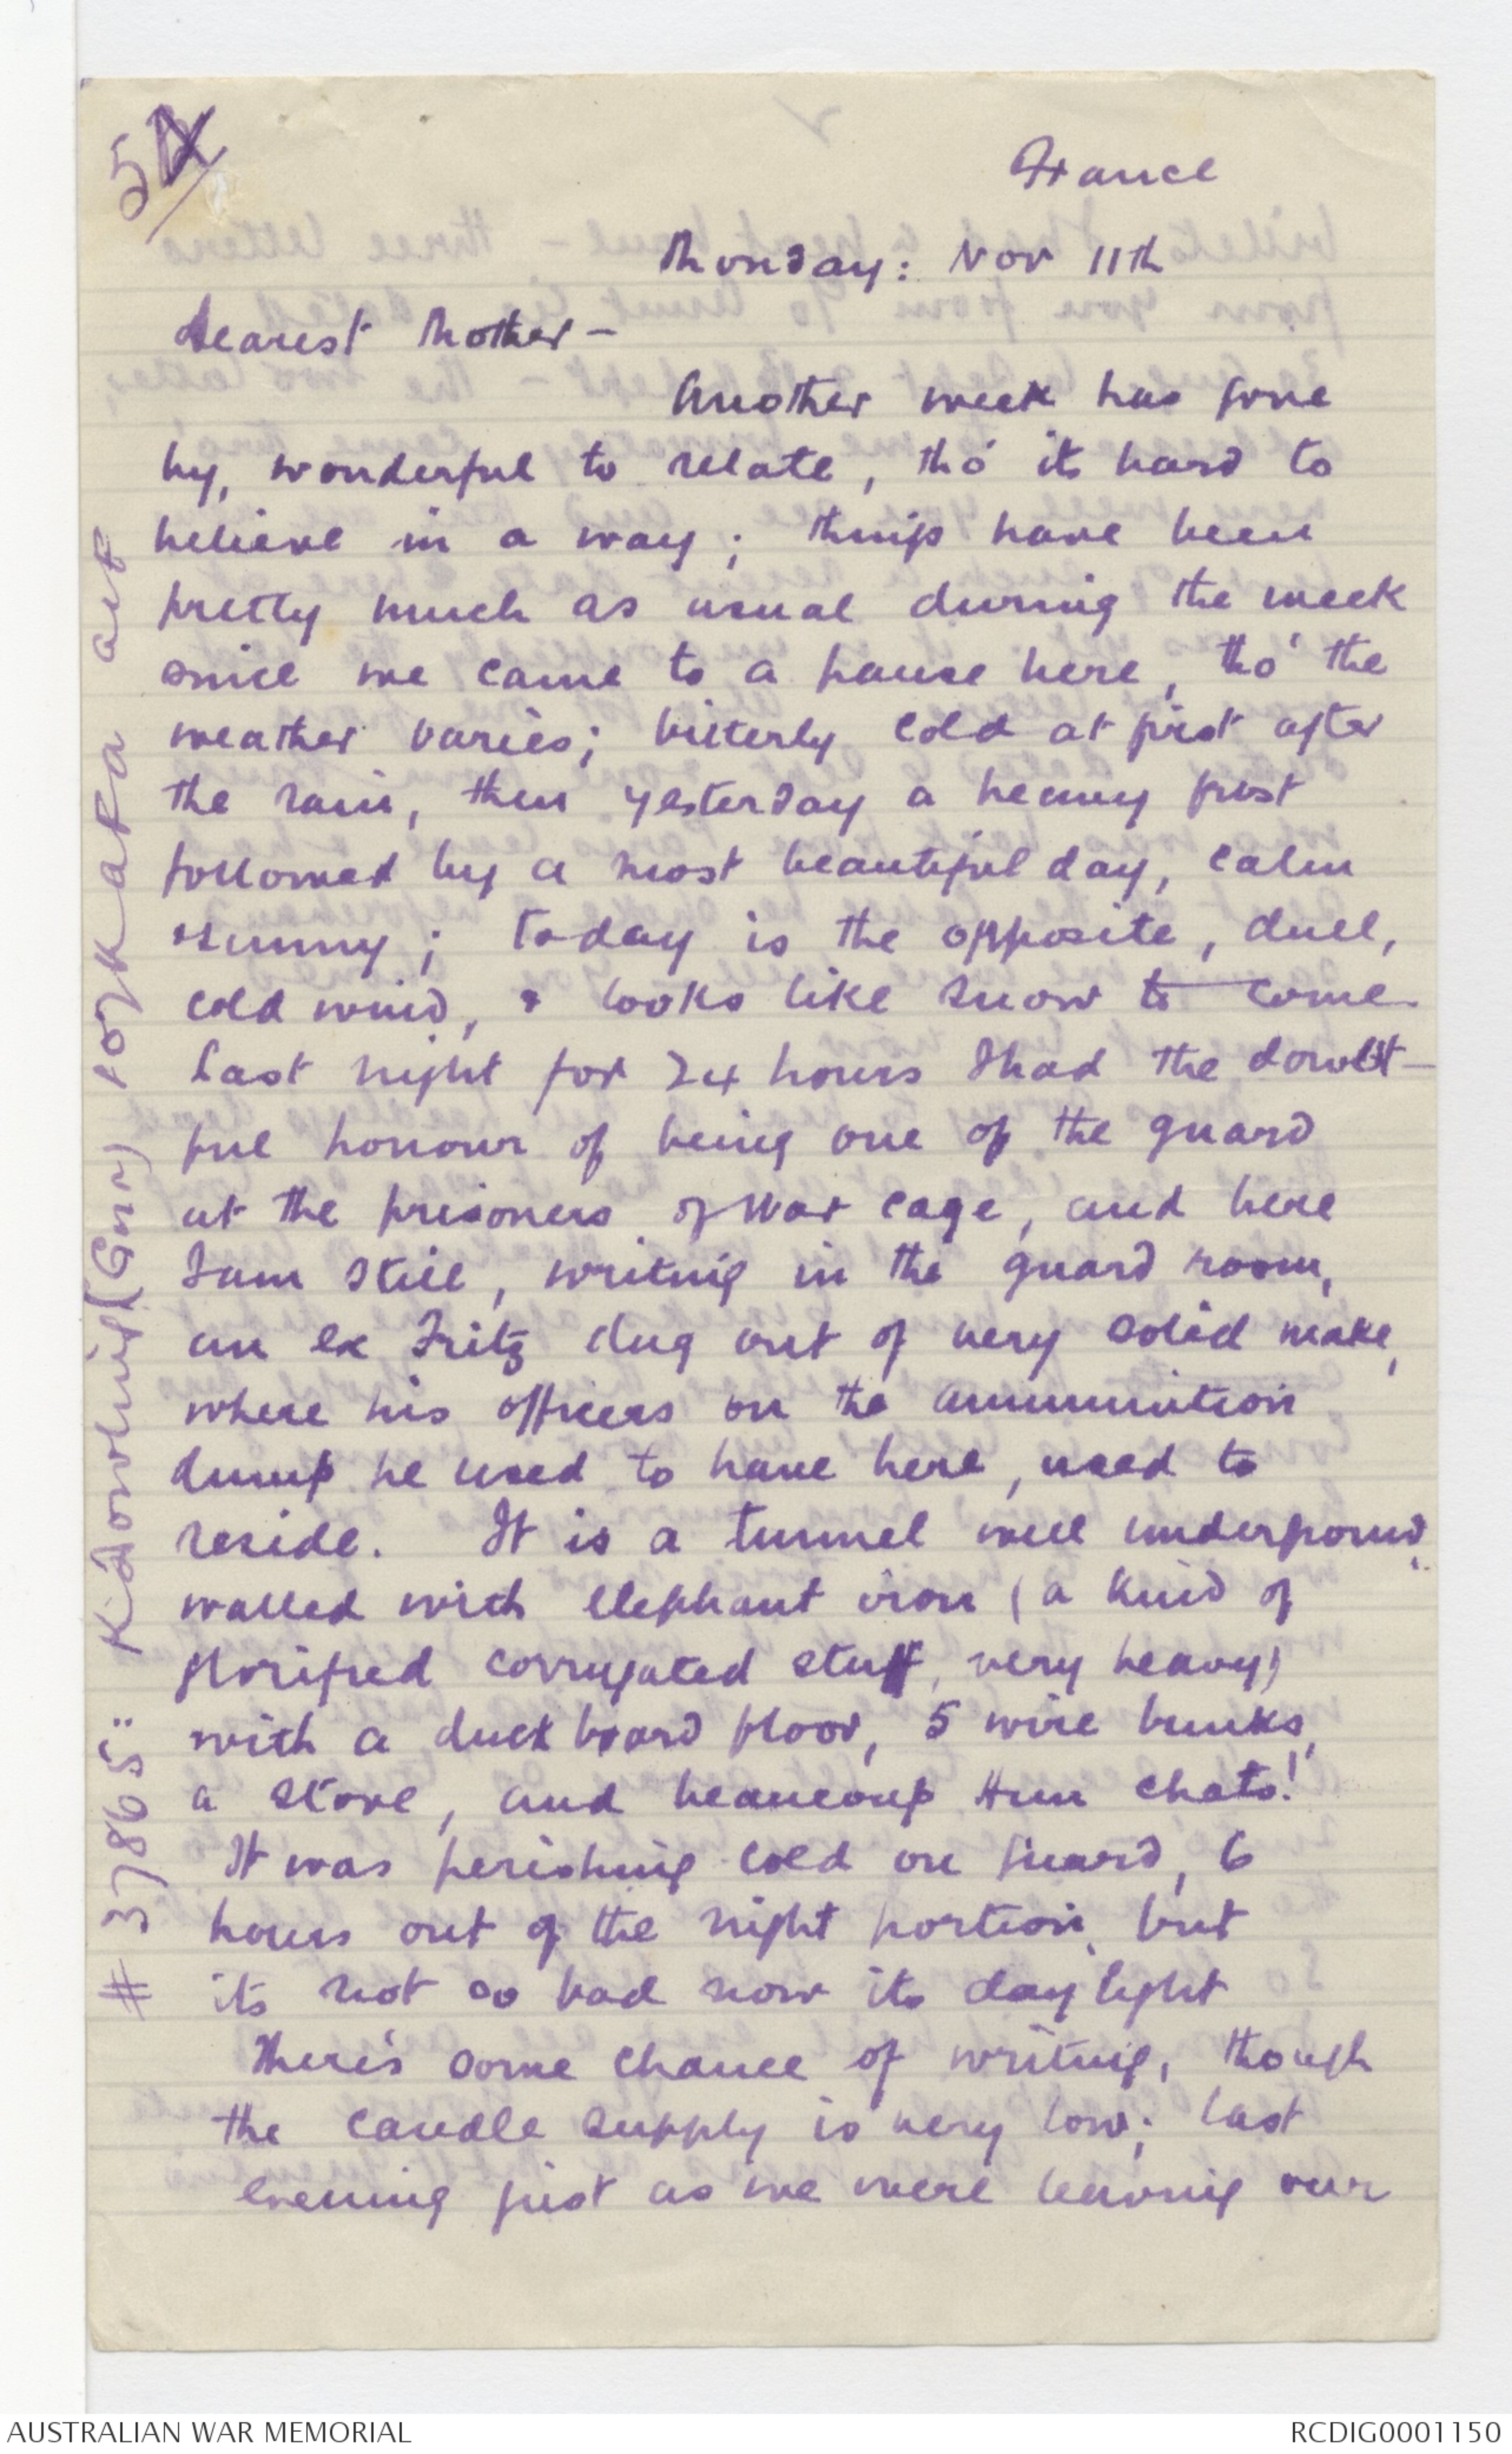 France
Monday: Nov 11th
Dearest Mother –
Another week has gone
by, wonderful to relate, tho' its hard to
believe in a way; things have been
pretty much as usual during the week
since we came to a pause here, tho' the
weather varies; bitterly cold at first after
the rain, then yesterday a heavy frost
followed by a most beautiful day, calm
& sunny; today is the opposite, dull,
cold wind, & looks like snow to come.
Last night for 24 hours I had the doubt-
ful honour of being one of the guard
at the prisoners of war cage, and here
I am still, writing in the guard room,
an ex Fritz dug out of very solid make,
where his officers on the ammunition
dump he used to have here, used to
reside. It is a tunnel well underground,
walled with elephant iron (a kind of
glorified corrugated stuff, very heavy)
with a duck board floor, 5 wire bunks,
a stove, and beaucoup Hun chats!
It was perishing cold on guard, 6
hours out of the night portion, but
its not so bad now its daylight
There's some chance of writing, though
the candle supply is very low; last
evening just as we were leaving our
# 37865: (Gnr)
AUSTRALIAN WAR MEMORIAL
RCDIG0001150